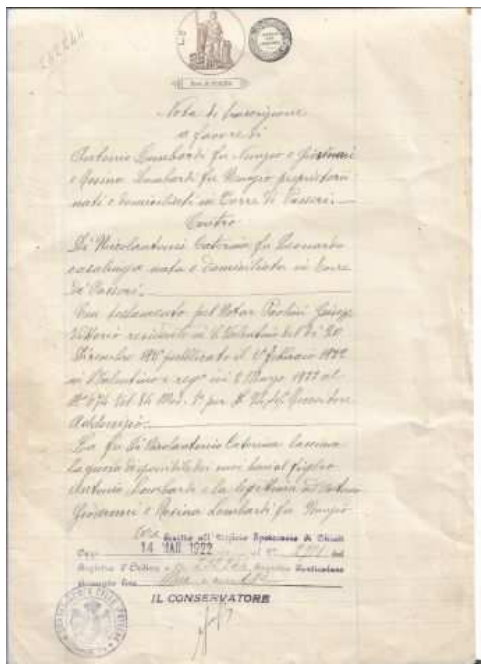 Nota di trascrizione
a favore di
Antonio Lombardi fu Nunzio e Giovanni
e Rosina Lombardi fu Nunzio proprietari
nati e domiciliati in Torre de' Passeri.
Contro
Di Nicolantonio Caterina fu Leonardo
casalinga nata e domiciliata in Torre
de' Passeri.
Con testamento pel Notar Paolini
Vittorio residente in S. Valentino del dì 20
Dicembre pubblicato il 1° febbraio 1922
in S. Valentino e reg° ivi 2 Marzo 1922 al
N° 674 Vol 84 Mod. 1° per £
La fu Di Nicolantonio Caterina lasciava
la quota disponibile dei suoi beni al figlio
Antonio Lombardi e la legittima ad
Giovanni e Rosina Lombardi fu Nunzio
all'Ufficio Ipotecario di Chieti
Oggi 14 MAR 1922 al N° del
Registro d'Ordine e Registro Particolare
IL CONSERVATORE